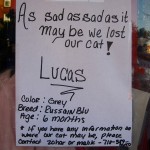 As sad as sad as it
may be we lost
our cat!
LUCAS
Color: Grey
Breed: Russain Blu
Age: 6 months
* if you have any information on
where our cat may be, please
contact Zohar or malik - 718-